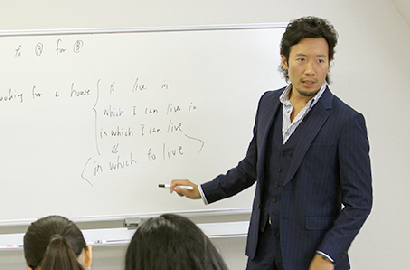 to Ⓐ for Ⓑ
ooking for a house to live in
which I can live in
in which I can live
in which to live